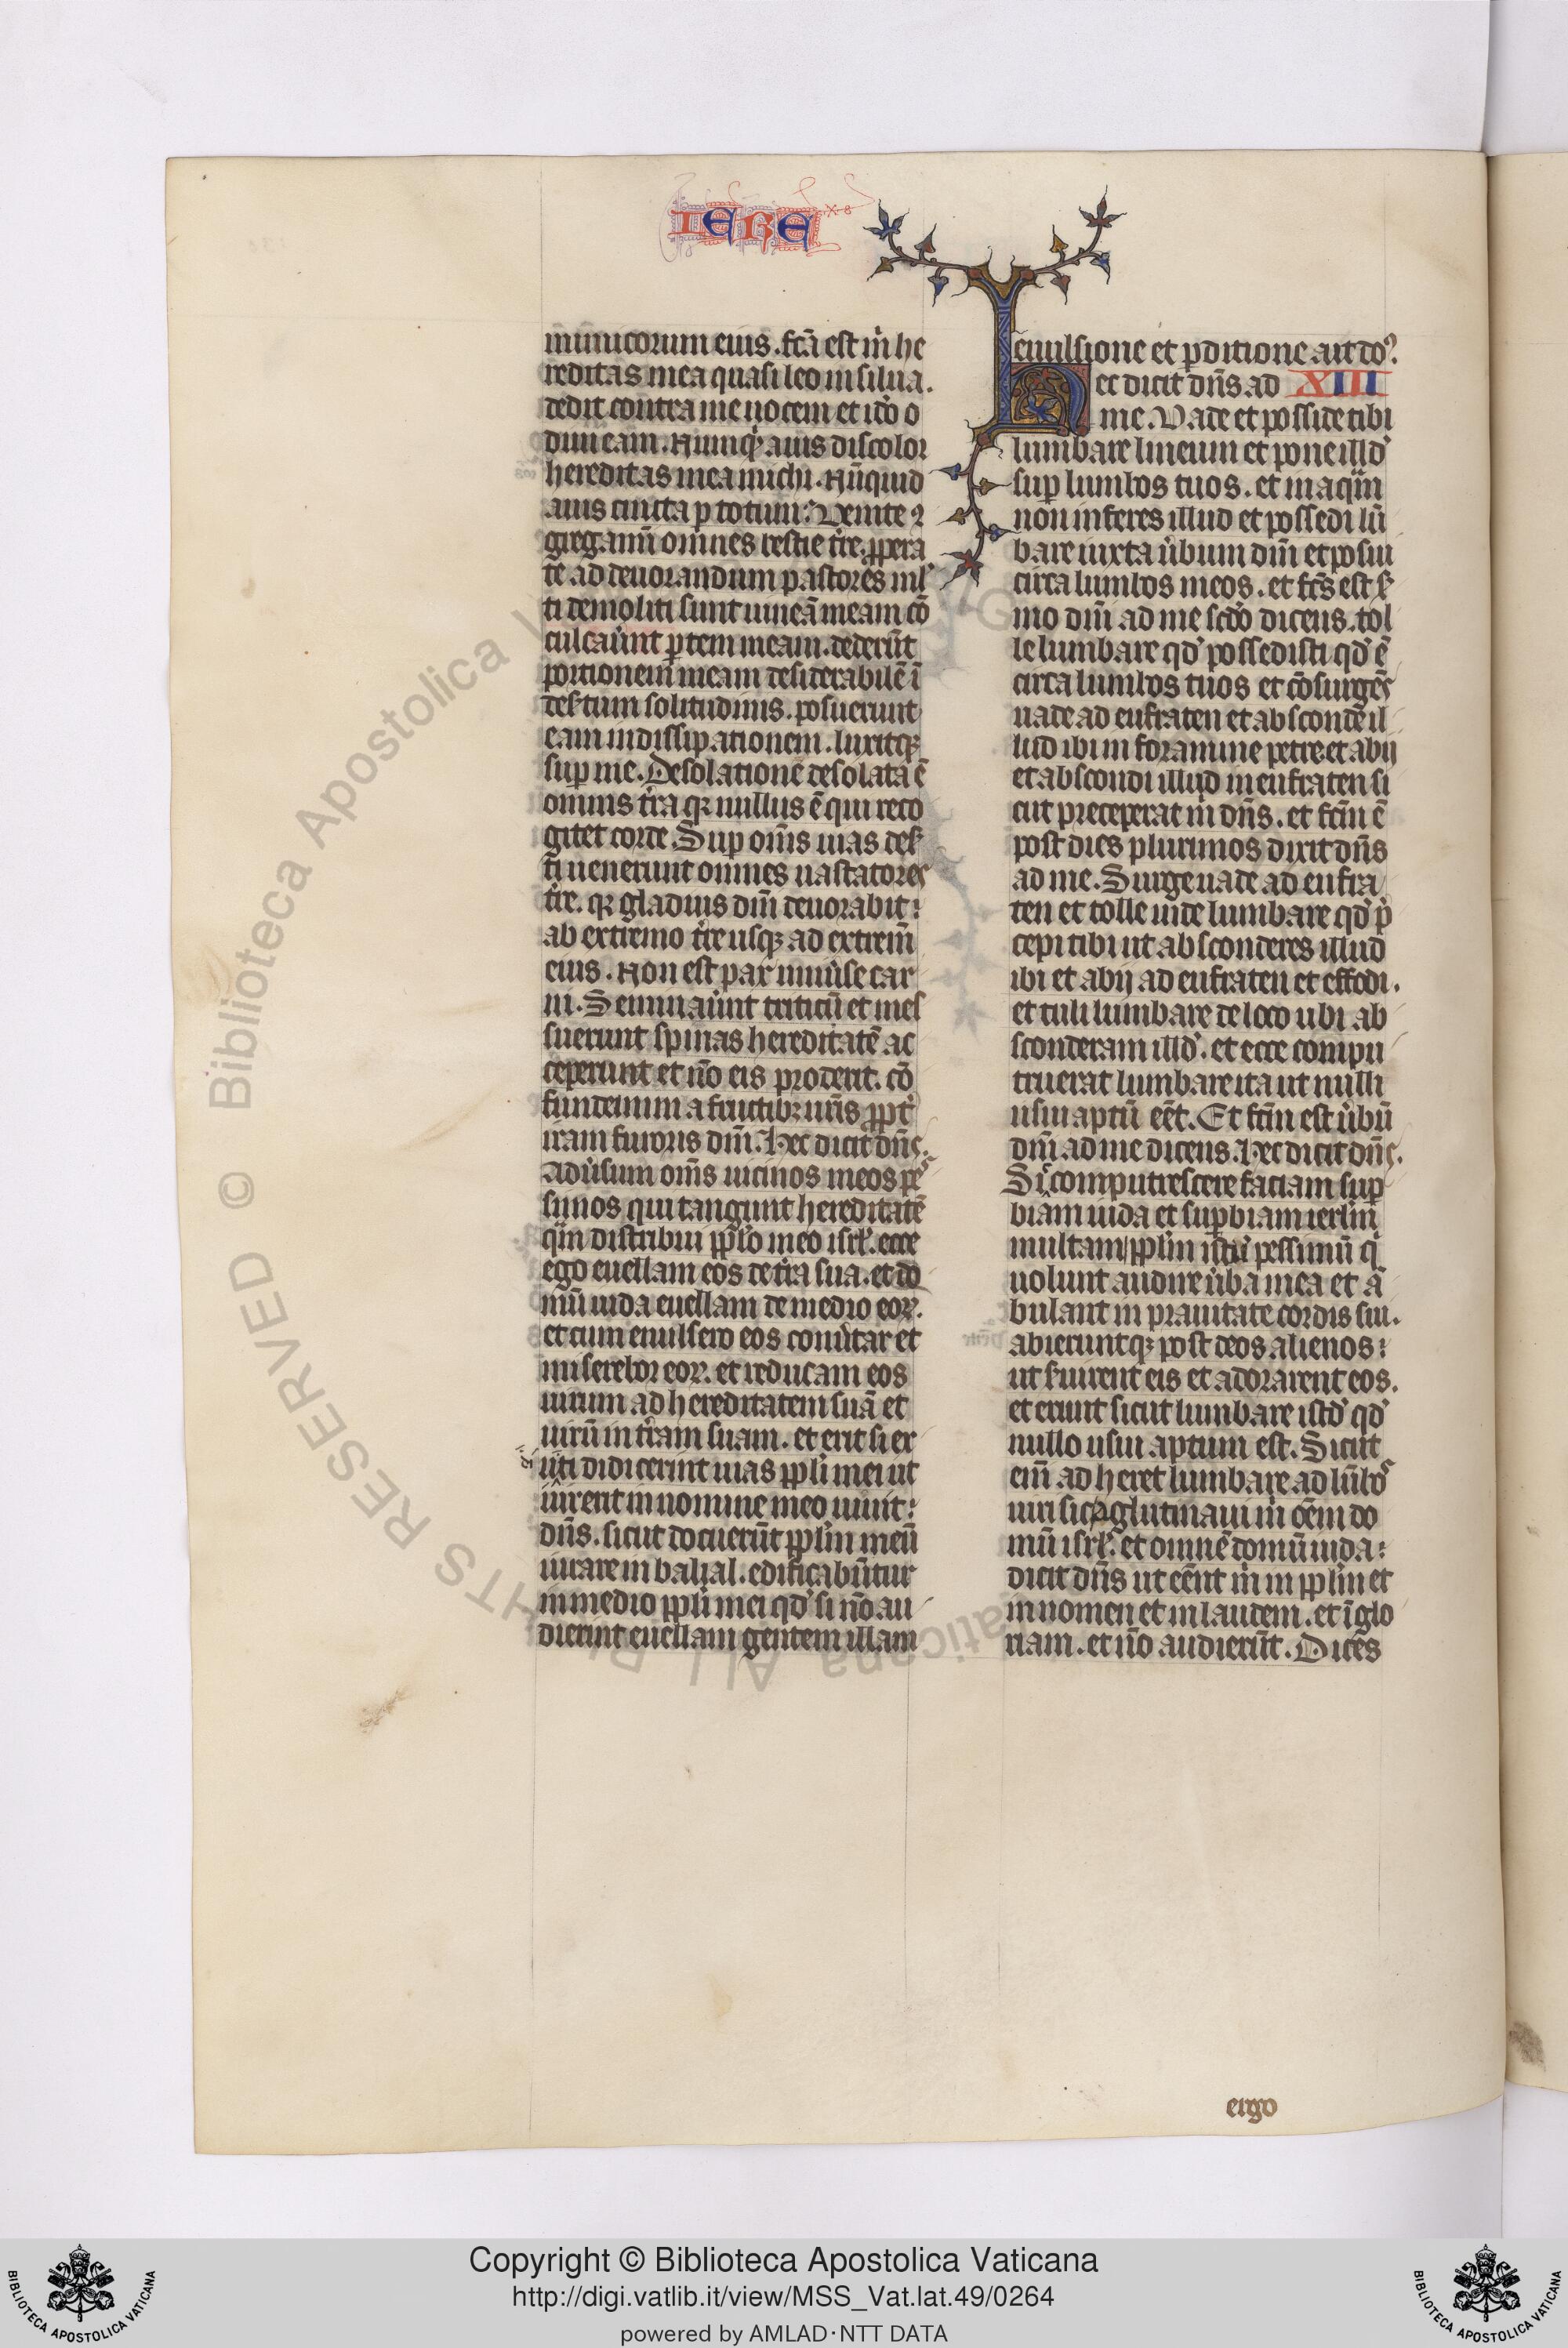 IERE
inimicorum eius. fc̄a est m̄ he
reditas mea quasi leo in silua.
dedit contra me uocem et iđo o
diui eam. Numq̢ auis discolor
hereditas mea michi. Nūquid
auis tincta p totum? Venite ⁊
gregam̄ omnes bestie tr̄e. ꝓpera
te ad deuorandum pastores ml̓
ti demoliti sunt uineā meam cō
culcaūnt ꝑtem meam. dederūt
portionem meam desiderabilē ī
desʼtum solitudinis. posuerunt
eam in dissipationem. luxitqꝫ
suꝑ me. Desolatione desolata ē
omnis tr̄a qꝛ nullus ē qui reco
gitet corde. Suꝑ om̄s uias desʼ
ti uenerunt omnes uastatores
tr̄e. qꝛ gladius dn̄i deuorabit:
ab extremo tr̄e usqꝫ ad extrem̄
eius. Non est pax uniūse car
ni. Seminaūnt triticū et mes
suerunt spinas hereditatē ac
ceperunt et nō eis proderit. cō
fundemini a fructibꝫ ur̄is ꝓpt̓
iram furoris dn̄i. Hec dicit dn̄s.
Adūsum om̄s uicinos meos pes
simos qui tangunt hereditatē
qm̄ distribui pplo̓ meo isrl̓. ecce
ego euellam eos de tr̄a sua. et do
mū iuda euellam de medio eoꝝ.
et cum euulsero eos conūtar et
miserebor eoꝝ. et reducam eos
uirum ad hereditatem suā et
uirū in tr̄am suam. et erit si er
uti didicerint uias ppli̓ mei ut
iurent in nomine meo uiuit:
dn̄s. sicut docuerūt pplm̄ meū
iurare in balial. edificabūtur
in medio ppli̓ mei qd̓ si nō au
dierint euellam gentem illam
euulsione et ꝑditione ait do᷒.
ec dicit dn̄s ad XIII
me. Vade et posside tibi
lumbare lineum et pone illd̓
suꝑ lumbos tuos. et in aqm̄
non inferes illud et possedi lū
bare iuxta ūbum dn̄i et posui
circa lumbos meos. et fc̄s est sʼ
mo dn̄i ad me scđo dicens. tol
le lumbare qd̓ possedisti qd̓ ē
circa lumbos tuos et cōsurgēs
uade ad eufraten et absconde il
lud ibi in foramine petre. et abij
et abscondi illud in eufraten si
cut preceperat m̄ dn̄s. et fc̄m ē
post dies plurimos dixit dn̄s
ad me. Surge uade ad eufra
ten et tolle inde lumbare qd̓ p̄
cepi tibi ut absconderes illud
ibi et abij ad eufraten et effodi.
et tuli lumbare de loco ubi ab
sconderam illd̓. et ecce compu
truerat lumbare ita ut nulli
usui aptū eēt. Et fc̄m est ūbū
dn̄i ad me dicens. Hec dicit dn̄s.
Sic̓ computrescere faciam suꝑ
biam iuda et suꝑbiam ierlm̄
multam pplm̄ istū pessimū q̄
nolunt audire ūba mea et ā
bulant in prauitate cordis sui.
abieruntqꝫ post deos alienos:
ut sʼuirent eis et adorarent eos.
et erunt sicut lumbare istd̓ qd̓
nullo usui aptum est. Sicut
eni̅ adheret lumbare ad lūbos
uiri sic aglutinaui m̄ oēm do
mū isrl̓. et omnē domū iuda:
dicit dn̄s ut eēnt m̄ in pplm̄ et
in nomen et in laudem. et ī glo
riam. et nō audierūt. Dices
ergo
Copyright © Biblioteca Apostolica Vaticana
http://digi.vatlib.it/view/MSS_Vat.lat.49/0264
powered by AMLAD·NTT DATA
BIBLIOTECA APOSTOLICA VATICANA
BIBLIOTECA APOSTOLICA VATICANA